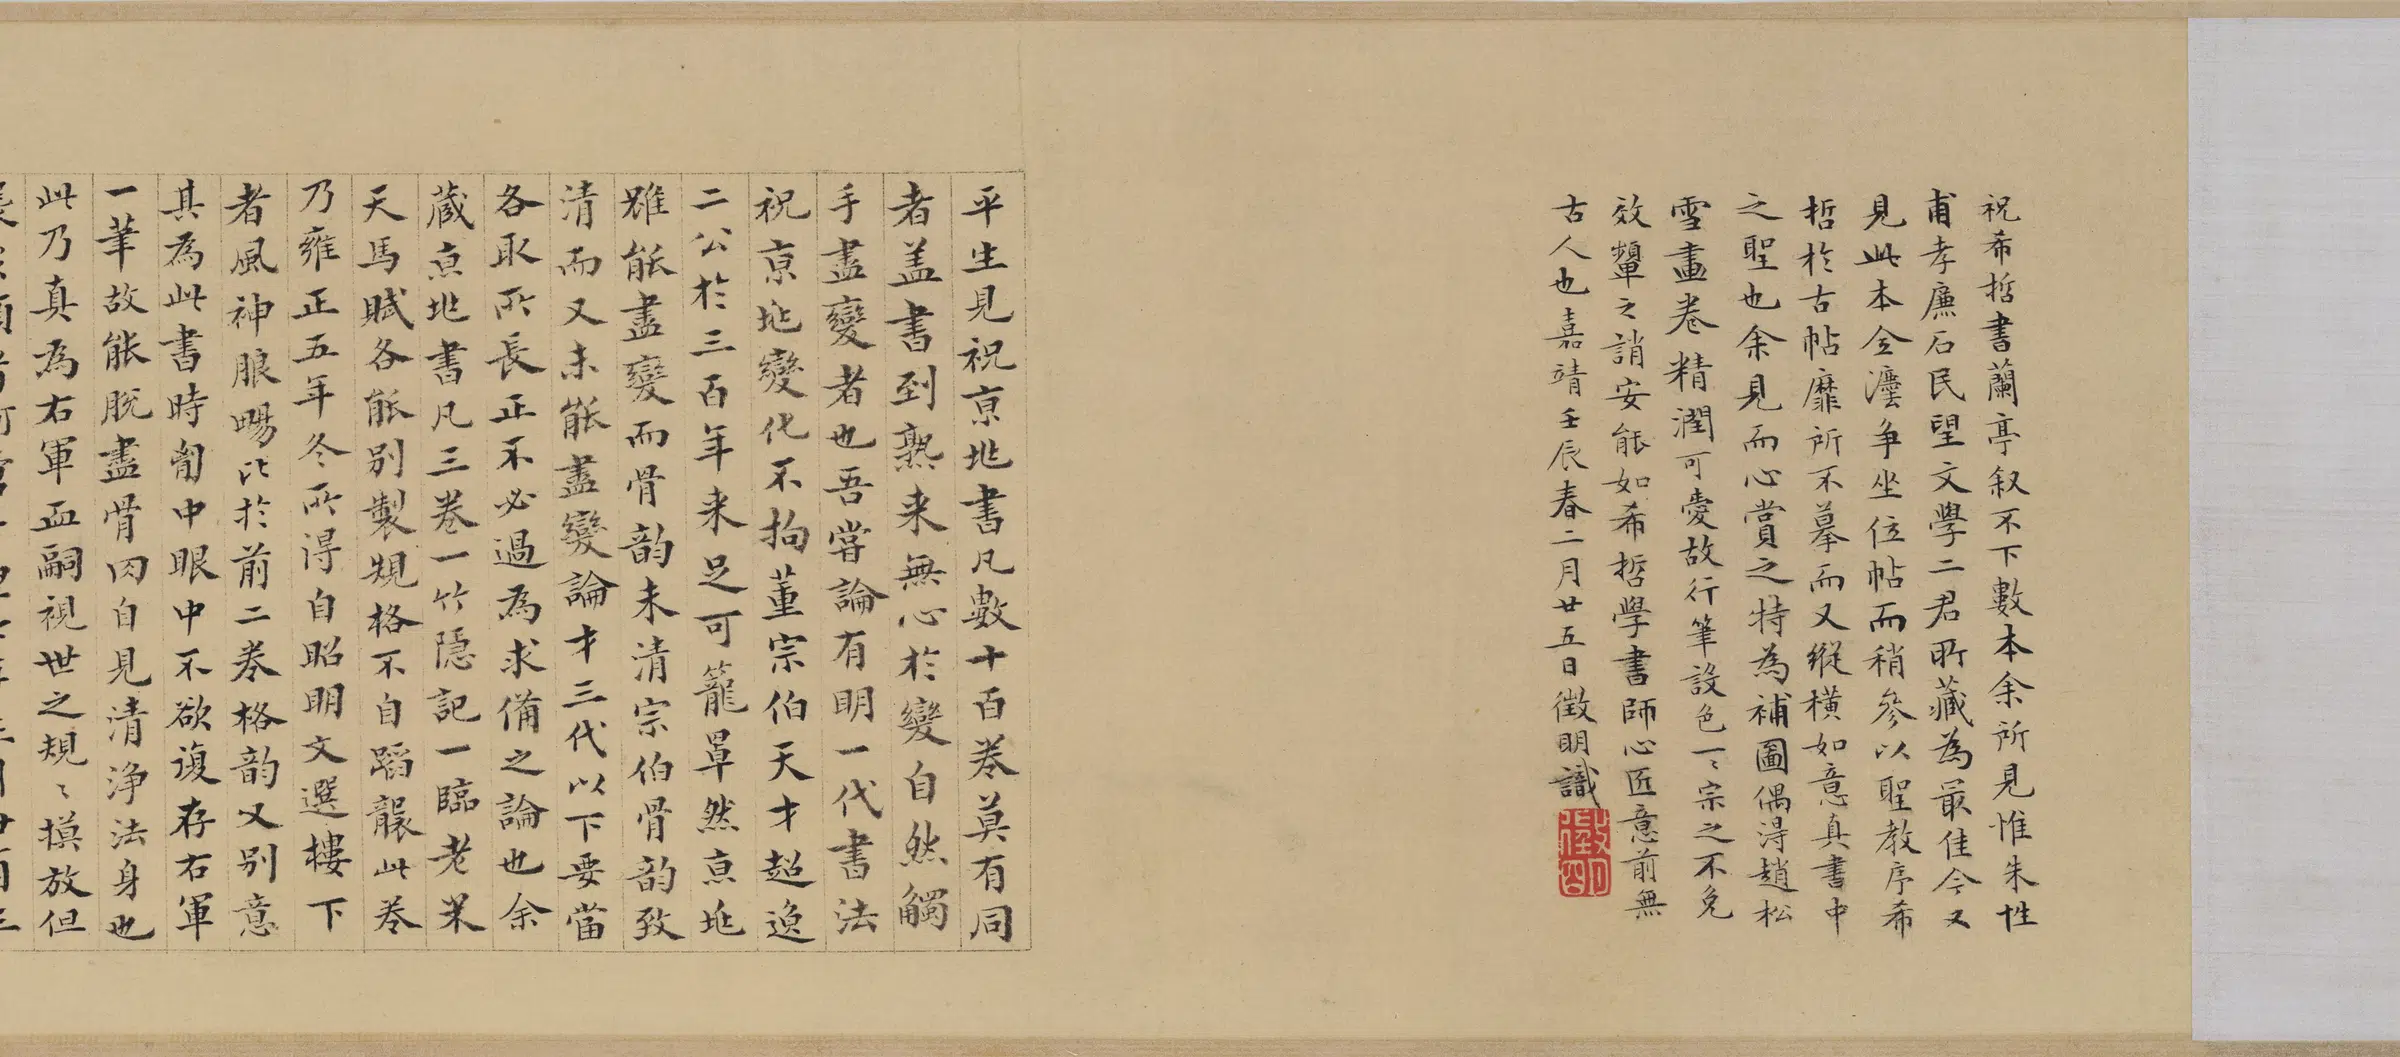 祝希哲書蘭亭叙不下數本余所見惟朱性
甫孝廉石民望文學二君所藏為最佳今又
見此本全灋争坐位帖而稍參以聖教序希
哲於古帖靡所不摹而又縱橫如意真書中
之聖也余見而心賞之特為補圖偶淂趙松
雪畫卷精潤可愛故行筆設色一〻宗之不免
效顰之誚安能如希哲學書師心匠意前無
古人也嘉靖壬辰春二月廿五日徵明識
平生見祝京兆書凡數十百卷莫有同
者盖書到熟来無心於變自然觸
手盡變者也吾嘗論有明一代書法
祝京兆變化不拘董宗伯天才超逸
二公於三百年来足可籠罩然京兆
雖能盡變而骨韵未清宗伯骨韵致
清而又未能盡變論才三代以下要當
各取所長正不必過為求備之論也余
蔵京兆書凡三卷一竹隠記一臨老米
天馬賦各能別製規格不自蹈襲此卷
乃雍正五年冬所淂自昭明文選樓下
者風神脹暢比於前二卷格韵又别意
其為此書時匈中眼中不欲復存右軍
一筆故能脫盡骨肉自見清浄法身也
此乃真為右軍血嗣視世之規〻摸放但